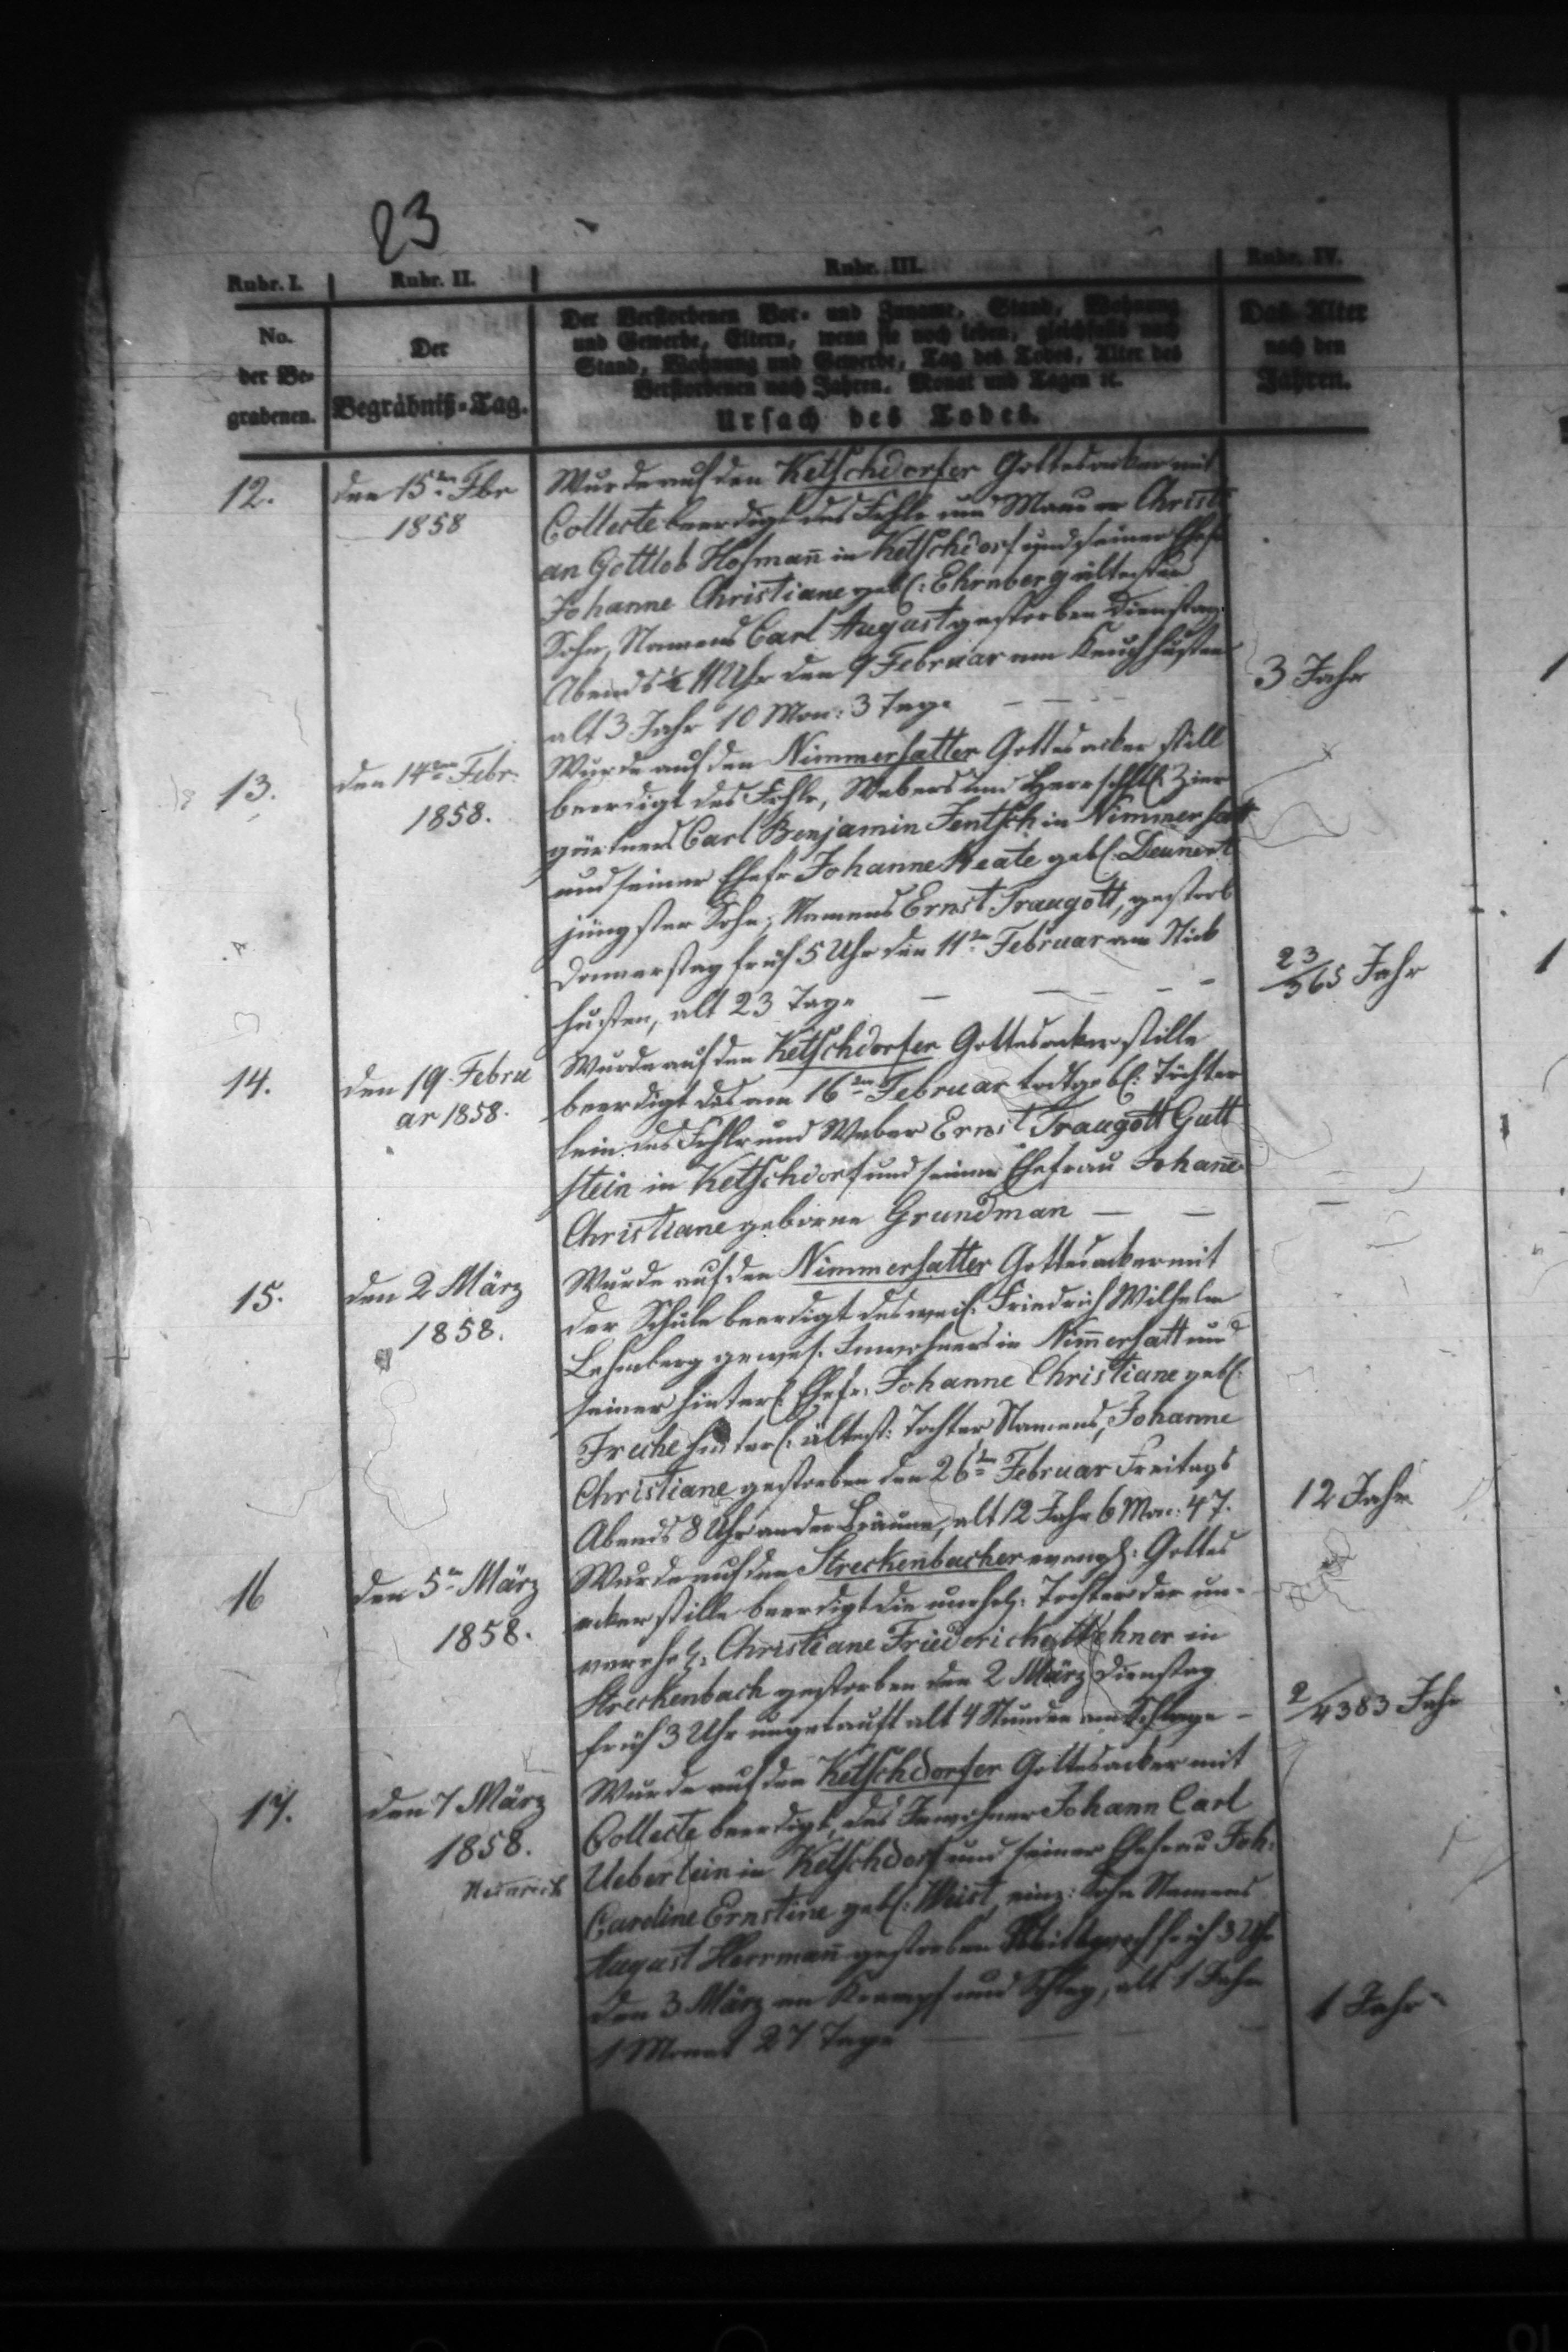 23
Rubr. I. Rubr. II. Rubr. III. Rubr. IV.
No. der Be- grabenen.
Der Begräbniß-Tag.
Der Verstorbenen Vor- und Zuname, Stand, Wohnung
und Gewerbe, Eltern, wenn sie noch leben, gleichfalls nach
Stand, Wohnung und Gewerbe, Tag des Todes, Alter des
Verstorbenen nach Jahren, Monat und Tagen ic.
Ursach des Todes.
Das Alter
nach den
Jahren.
12. den 15ten Fbr
1858
Wurde auf den Ketschdorfer Gottesacker mit
Collecte beerdigt des Frhlr und Maurer Christi
an Gottlob Hofmañ in Ketschdorf und seiner Ehefr
Johanne Christiane geb: Ehrnberg ältester
Sohn, Namens Carl August gestorben Dienstag
Abends 11 Uhr den 9 Februar am Keuchhusten
alt 3 Jahr 10 Mon: 3 Tage – – –
3 Jahr
13. den 14ten Febr:
1858.
Wurde auf den Nimmersatter Gottesacker still
beerdigt des Frhlr, Webers und Herrschftl: Zier
gärtners Carl Benjamin Jentsch in Nimmersatt
und seiner Ehefr Johanne Beate geb: Deunert
jüngster Sohn, Namens Ernst Traugott, gestorb
Donnerstag früh 5 Uhr den 11ten Februar am Stick
husten, alt 23 Tage – – – –
23/365 Jahr
14. den 19. Febru
ar 1858.
Wurde auf den Ketschdorfer Gottesacker stille
beerdigt das am 16ten Februar todtgeb: Töchter
lein des Frhlr und Weber Ernst Traugott Gutt
stein in Ketschdorf und seiner Ehefrau Johañe
Christiane geborne Grundman – –
15. den 2 März
1858.
Wurde auf den Nimmersatter Gottesacker mit
der Schule beerdigt des weil: Friedrich Wilhelm
Lehmberg gewes: Inwohners in Nim̄ersatt und
seiner hinterl: Ehefr: Johanne Christiane geb:
Freche hinterl: älteste: Tochter, Namens, Johanne
Christiane gestorben den 26ten Februar Freitags
Abends 8 Uhr an der Bräune, alt 12 Jahr 6 Mon: 4 T.
12 Jahr
16 den 5ten März
1858.
Wurde auf den Streckenbacher evangl: Gottes
acker stille beerdigt die unehel: Tochter der un-
verehel: Christiane Friedericke in
Streckenbach gestorben den 2 März Dienstag
früh 3 Uhr ungetauft alt 4 Stunden am Schlage –
2/4383 Jahr
17. den 7 März
1858.
Heinrich
Wurde auf den Ketschdorfer Gottesacker mit
Collecte beerdigt, des Inwohner Johann Carl
Ueberlein in Ketschdorf und seiner Ehefrau Joh:
Caroline Ernstine geb: Weist, einz: Sohn Namens
August Herrmañ gestorben Mittwoch früh 3 Uhr
den 3 März an Krampf und Schlag, alt 1 Jahr
1 Monat 27 Tage – – – –
1 Jahr